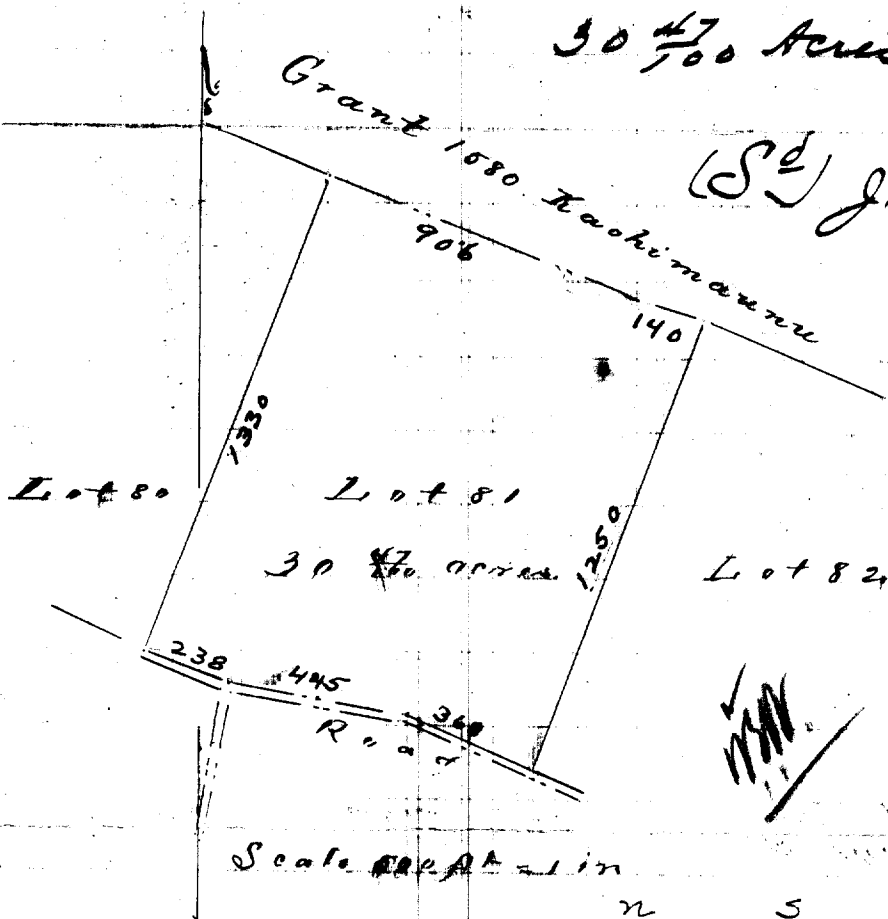 30 47/100 Acres
Grant 1580 Kaohimaunu
(Sd) J.
906
140
1330
1250
Lot 80
Lot 81
30 47/100 acres
Lot 82
238
445
360
Road
Scale ft = 1 in
n s